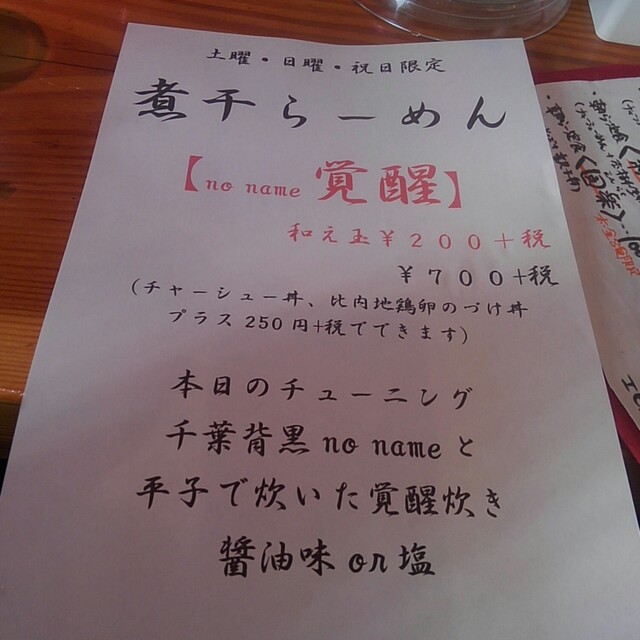 土曜・日曜・祝日限定
煮干らーめん
【no name 覚醒】
和え玉￥２００＋税
￥７００＋税
(チャーシュー丼、比内地鶏卵のづけ丼
プラス250円+税でできます)
本日のチューニング
千葉背黒no nameと
平子で炊いた覚醒炊き
醤油味or塩